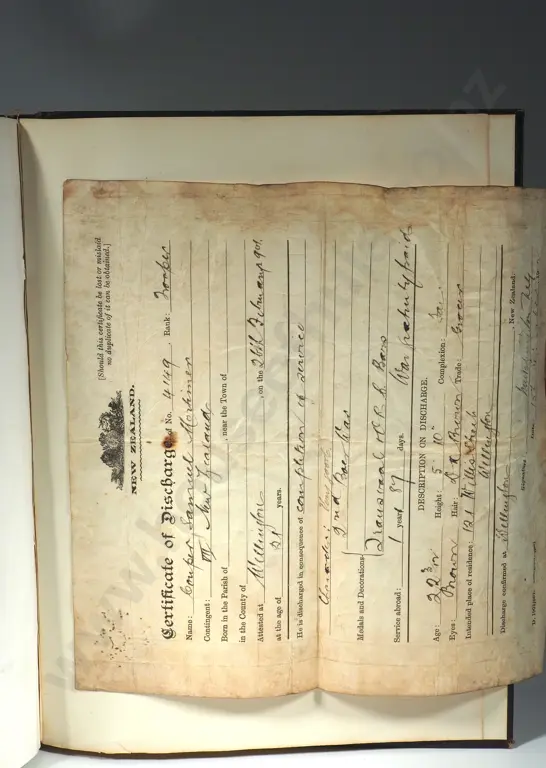 [Should this certificate be lost or mislaid
no duplicate of it can be obtained.]
NEW ZEALAND.
Certificate of Discharge
No. 4149 Rank: Trooper
Name: Couper Samuel Mortimer
Contingent: New Zealand
Born in the Parish of near the Town of
in the County of
Attested at Wellington on the 26th February 901
at the age of 21 years.
He is discharged in consequence of completion of service
2nd Boer War
Medals and Decorations
Transvaal O.R.C. Bars
Service abroad: 1 year 87 days. War gratuity paid
DESCRIPTION ON DISCHARGE.
Age: 22 Height: 5' 10" Complexion: Fair
Eyes: Brown Hair: Brown Trade: Grocer
Intended place of residence: 131 Willis Street
Wellington
Discharge confirmed at Wellington, New Zealand
Signature